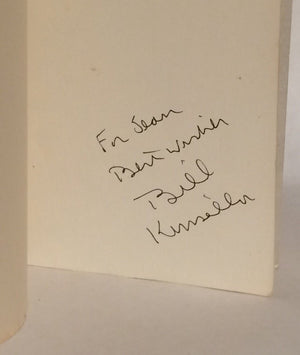 For Jean
Best Wishes
Bill
Kinsella